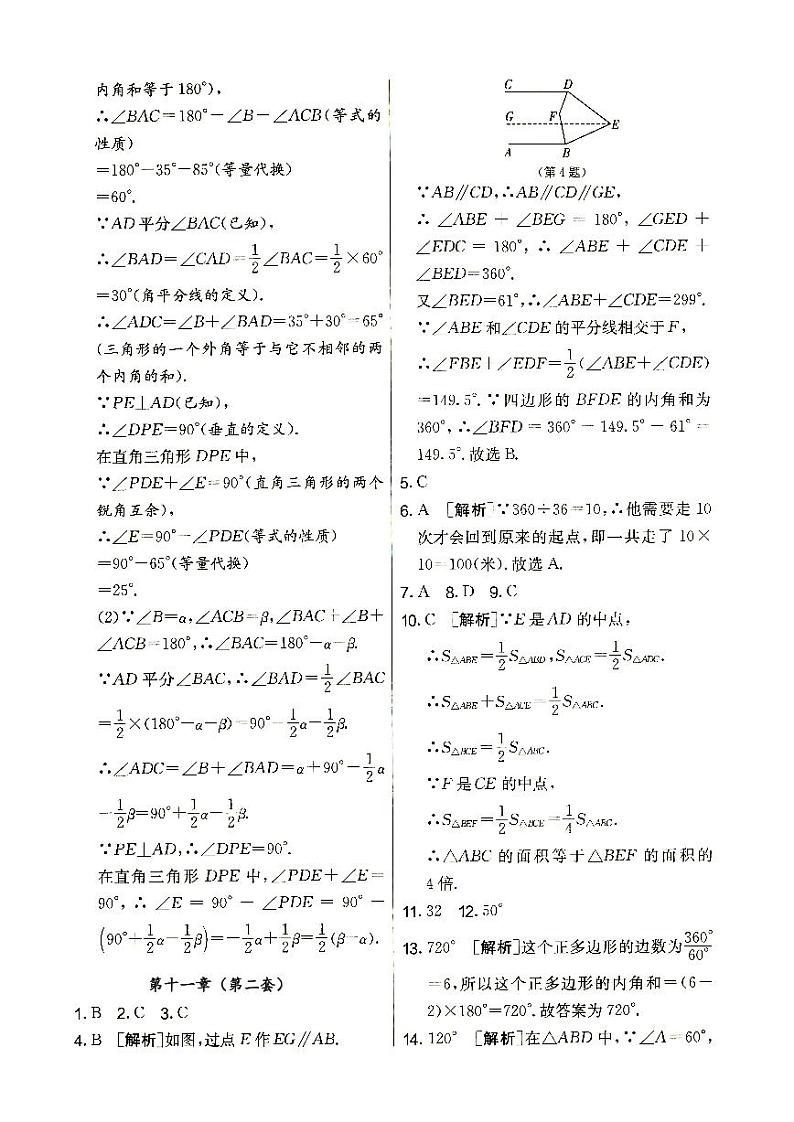 内角和等于180°),
∴∠BAC=180°-∠B-∠ACB(等式的
性质)
=180°-35°-85°(等量代换)
=60°.
∵AD平分∠BAC(已知),
∴∠BAD=∠CAD=1/2∠BAC=1/2×60°
=30°(角平分线的定义).
∴∠ADC=∠B+∠BAD=35°+30°=65°
(三角形的一个外角等于与它不相邻的两
个内角的和).
∵PE⊥AD(已知),
∴∠DPE=90°(垂直的定义).
在直角三角形DPE中,
∵∠PDE+∠E=90°(直角三角形的两个
锐角互余),
∴∠E=90°-∠PDE(等式的性质)
=90°-65°(等量代换)
=25°.
(2)∵∠B=α,∠ACB=β,∠BAC+∠B+
∠ACB=180°,∴∠BAC=180°-α-β.
∵AD平分∠BAC,∴∠BAD=1/2∠BAC
=1/2×(180°-α-β)=90°-1/2α-1/2β.
∴∠ADC=∠B+∠BAD=α+90°-1/2α
-1/2β=90°+1/2α-1/2β.
∵PE⊥AD,∴∠DPE=90°.
在直角三角形DPE中,∠PDE+∠E=
90°,∴∠E=90°-∠PDE=90°-
(90°+1/2α-1/2β)=-1/2α+1/2β=1/2(β-α).
第十一章(第二套)
1. B 2. C 3. C
4. B [解析]如图,过点E作EG∥AB.
C D
G F E
A B
(第4题)
∵AB∥CD,∴AB∥CD∥GE,
∴∠ABE+∠BEG=180°,∠GED+
∠EDC=180°,∴∠ABE+∠CDE+
∠BED=360°.
又∠BED=61°,∴∠ABE+∠CDE=299°.
∵∠ABE和∠CDE的平分线相交于F,
∴∠FBE+∠EDF=1/2(∠ABE+∠CDE)
=149.5°.∵四边形的BFDE的内角和为
360°,∴∠BFD=360°-149.5°-61°=
149.5°.故选B.
5. C
6. A [解析]∵360÷36=10,∴他需要走10
次才会回到原来的起点,即一共走了10×
10=100(米).故选A.
7. A 8. D 9. C
10. C [解析]∵E是AD的中点,
∴S△ABE=1/2S△ABD,S△ACE=1/2S△ADC.
∴S△ABE+S△ACE=1/2S△ABC.
∴S△BCE=1/2S△ABC.
∵F是CE的中点,
∴S△BEF=1/2S△BCE=1/4S△ABC.
∴△ABC的面积等于△BEF的面积的
4倍.
11. 32 12. 50°
13. 720° [解析]这个正多边形的边数为360°/60°
=6,所以这个正多边形的内角和=(6-
2)×180°=720°.故答案为720°.
14. 120° [解析]在△ABD中,∵∠A=60°,